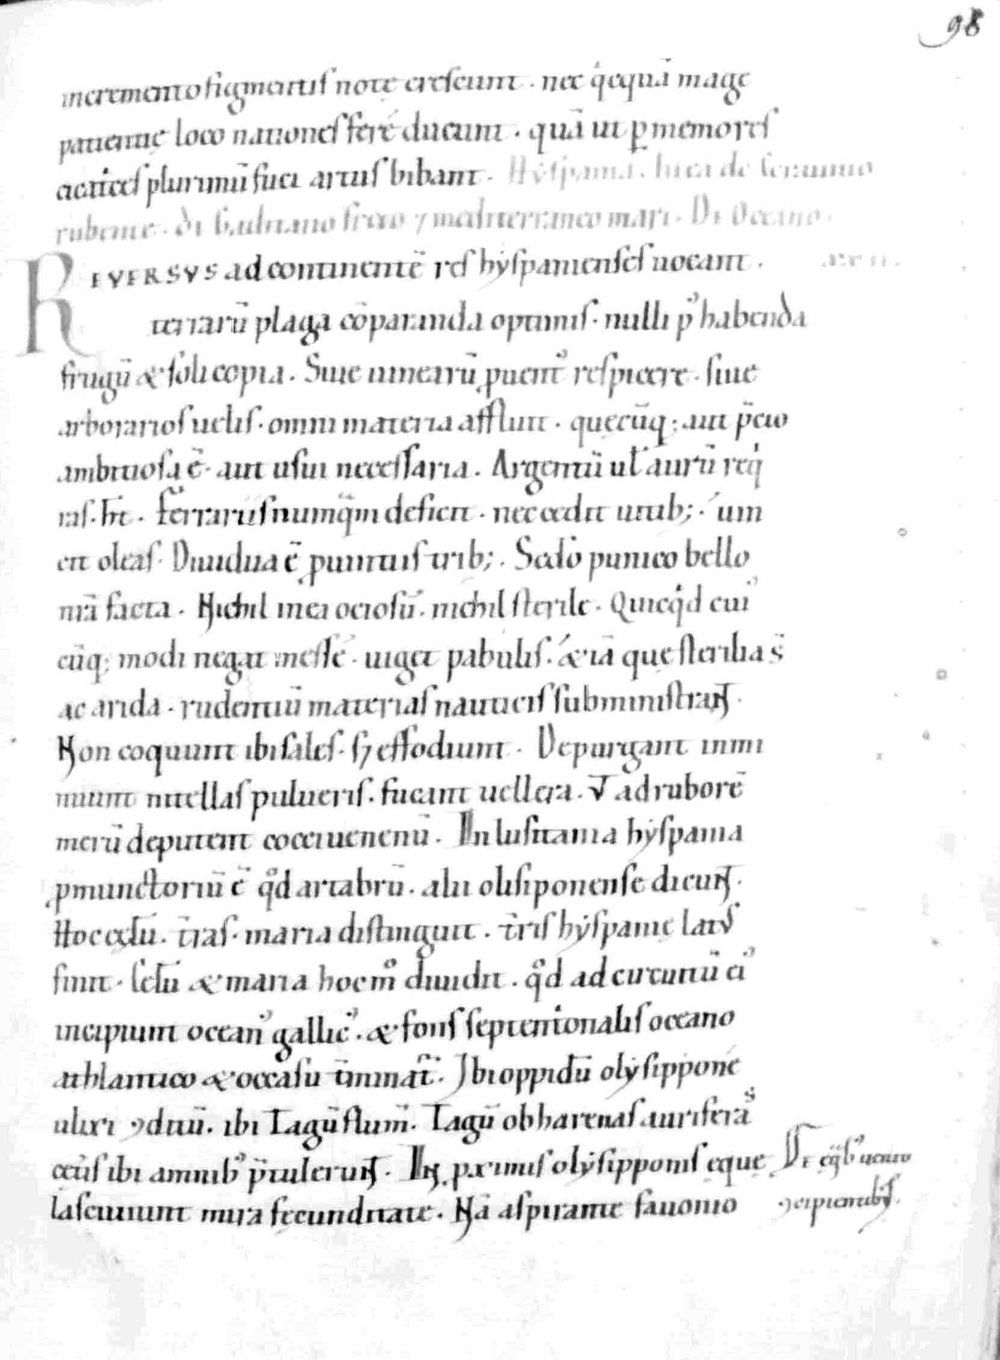 98
incremento figmentis note crescunt . nec q̇equā mage
patientię loco nationes fere ducunt . quā ut ꝑ memores
cicatrices plurimū fuci artus bibant . Hẏspania . luca de
rubente . de Gaditano freto ⁊ mediterraneo mari . De Oceano .
REVERSVS ad continentē res hẏspanienses uocant .
terrarū plaga cōparanda optimis . nulli p᷒habenda
frugū & soli copia . Siue uinearū puent᷒ respicere . siue
arborarios uelis . omni materia affluit . quęcūq; aut p̄cio
ambitiosa ē . aut usui necessaria . Argentū ul̄ aurū req̇
ras . h̄t . ferrariis numq̄m deficit . nec cedit uitib; . uin
cit oleas . Diuidua ē puintiis trib; . Scd̄o punico bello
nr̄a facta . Nichil in ei ociosū . nichil sterile . Quicq̇d cui᷒
cūq; modi negat messē . uiget pabulis . &iā que sterilia s̄
ac arida . rudentiū materias nauticis subministrant .
Non coquunt ibi sales . s; effodiunt . Depurgant in mi
nium nitellas pulueris . fucant uellera . Ut ad ruborē
merū deputent cocci uenenū . In lusitania hẏspania
ꝓmunctoriū ē q̊d artabrū . alii olisiponense dicunt .
Hoc cęlū . t̄ras . maria distinguit . t̄ris hẏspanię latus
finit . cęlū & maria hoc m̊ diuidit . q̊d ad circuitū ei᷒
incipiunt ocean᷒ gallic᷒ . & fons septentrionalis oceano
athlantico & occasu t̄minatis . Ibi oppidū olẏsippone
ulixi ꝯditū . ibi Tagū flum̄ . Tagū ob harenas auriferas
cet̄is ibi amnib᷒ p̄tulerunt . In ꝓximis olẏsipponis eque De eq̄b᷒ uento
lasciuiunt mira fęcunditate . Nā aspirante fauonio ꝯcipientib᷒ .